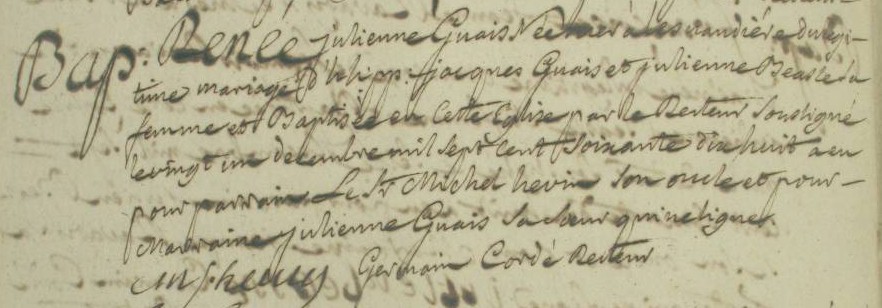 Bap: Renée julienne Guais Née hier a du legi-
time mariage d' philipp: jacques Guais et julienne sa
femme et Baptisée en Cette Eglise par le Recteur Soussigné
le vingt un decembre mil sept cent Soixante dix huit a eu
pour parrain Le Sr Michel hevin Son oncle et pour-
Marraine julienne Guais Sa Sœur qui ne signe.
Germain Cordé Recteur